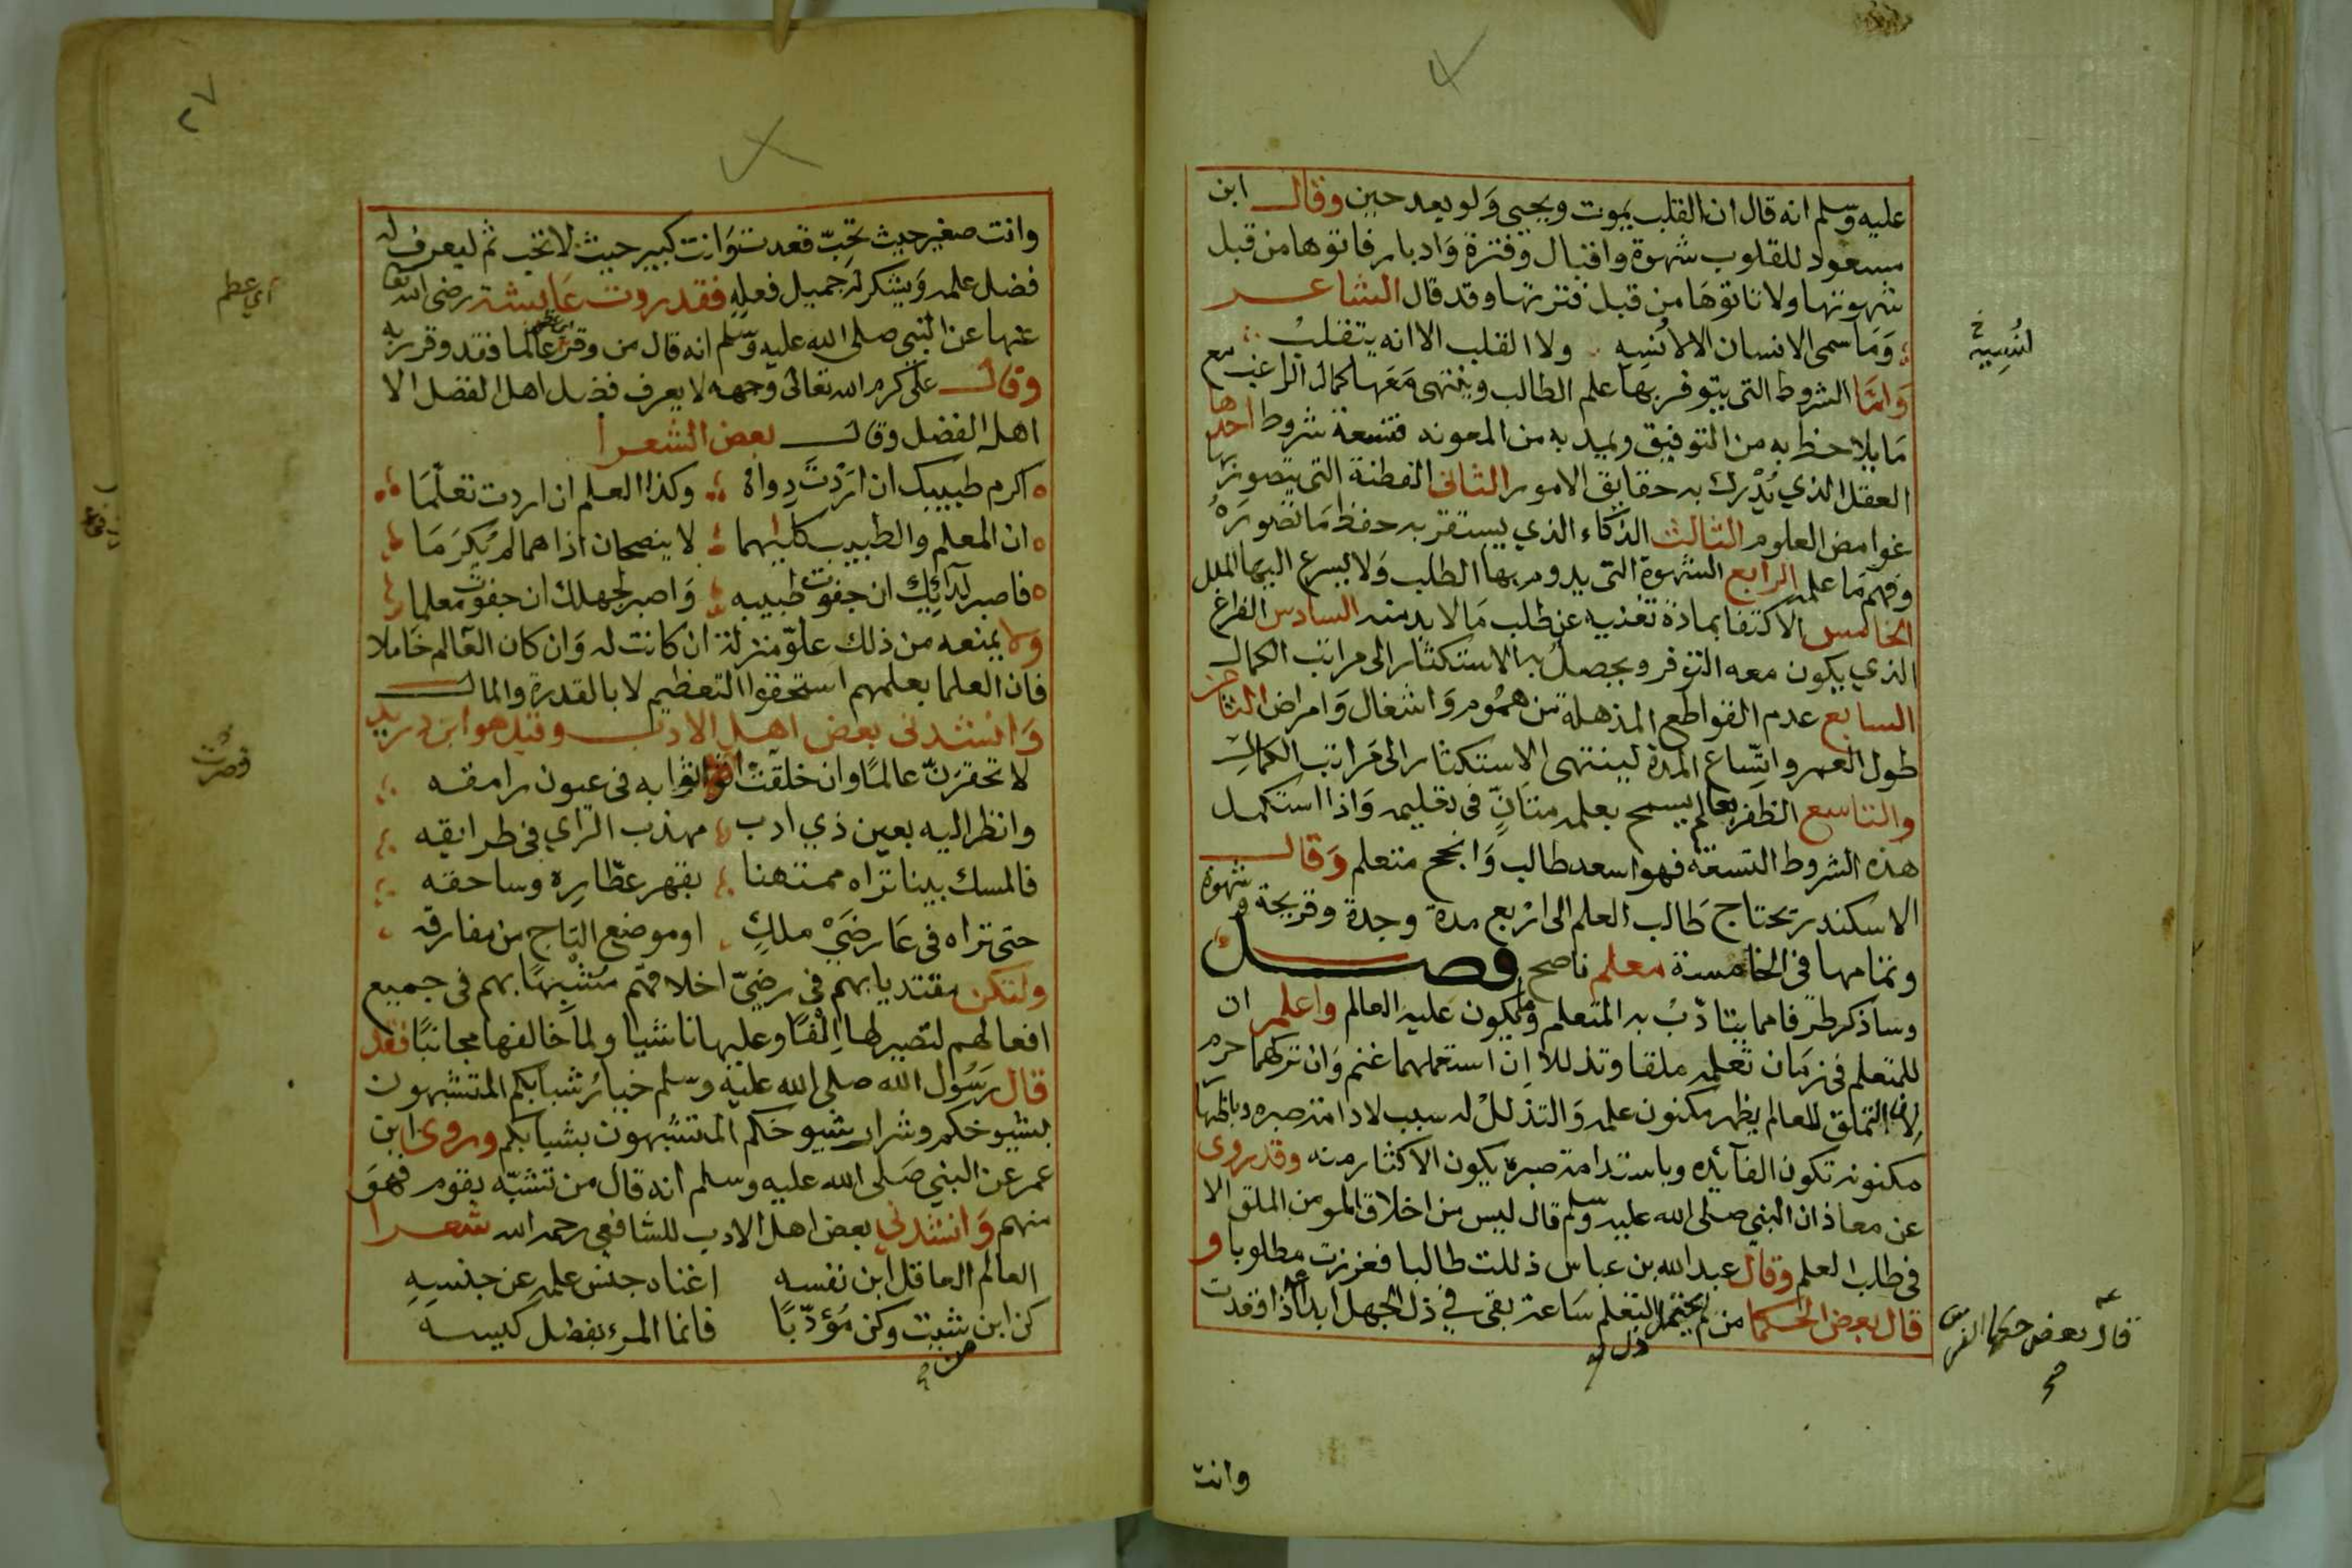 عليه وسلم انه قال ان القلب يموت ويحيى وَلو بعد حين وقال ابن
مسعود للقلوب شهوة واقبال وفترة وَادبار فاتوها من قبل
شهوتها ولا تاتوهَا من قبل فترتها وقد قال الشاعر
وَمَا سمى الانسان الا لانسِيهِ ولا القلب الا انه يتقلبُ
لِنُسِيِه خ
وَامَّا الشروط التي يتوفر بهَا علم الطالب وينتهى مَعَها كمال الراغب مع
مَا يلاحظ به من التوفيق ويمد به من المعونه فتسعة شروط احدها
العقل الذي يُدْرك به حقايق الامور الثانى الفطنة التى يتصور بها
غوامض العلوم الثالث الذكاء الذي يستقر به حفظ مَا تصَورَهُ
وفهم مَا علمه الرابع الشهوة التى يدوم بها الطلب وَلا يسرع اليهَا الملل
الخامس الاكتفا بمادة تغنيه عن طلب مَا لا بد منه السادس الفراغ
الذي يكون معه التوفر ويحصل به الاستكثار الى مراتب الكمال
السابع عدم القواطع المذهلة من همُوم وَاشغال وَامراض الثامن
طول العمر واتّساع المدة لينتهى الاستكثار الى مَراتب الكمال
والتاسع الظفر بعالم يسمح بعلمه متَانٍّ فى تعليمه وَاذا استكمل
هذه الشروط التسعة فهو اسعد طالب وَانجح متعلم وَقال
الاسكندر يحتاج طَالب العلم الى ارْبع مدة وجدة وقريحة وشهوة
وتمامها فى الخامسة معلم ناصح فصل
وساذكر طرفا مما يتادّبُ به المتعلم ويكون عليه العالم واعلم ان
للمتعلم فى زمَان تعلمه ملقا وتذللا اِن استعملهما غنم وَان تركهما حرم
لان التملق للعالم يظهر مكنون علمه وَالتذللْ له سبب لادامة صبره وباظهار
مكنونه تكون الفآئده وباستدامة صبره يكون الاكثار منه وقد روى
عن معاذ ان النبي صلى الله عليه وسلم قال ليس من اخلاق المومن الملق الا
فى طلب العلم وقال عبد الله بن عباس ذللت طالبا فعززت مطلوبا و
قال بعض الحكما من لم يحتمل ذل التعلم ساعة بقى في ذل الجهل ابدا اذا قعدت
قال بعض حكما الفرس صح
وانت
٢٧
وانت صغير حيث تحِبّ قعدت وَانت كبير حيث لا تحب ثم ليعرف له
فضل علمه وَيشكر لَه جميل فعلهِ فقد روت عَايشة رضى الله تعا
عنها عن النبي صلى الله عليه وسلم انه قال من وقر عالما فقد وقر ربه
اي عظم
وقال على كرم الله تعالى وَجهه لا يعرف فضل اهل الفضل الا
اهل الفضل وقال بعض الشعرا
اكرم طبيبك ان ارَدْتَ دِواهُ وكذا العلم ان اردت تعلّمَا
ان المعلم والطبيب كليهما لا ينصحان اذا هما لم يُكِرَمَا
فاصبر لدآئِك ان جفوْت طبيبه وَاصبر لجهلك ان جفوْت معلما
وَلا يمنعه من ذلك علوّ منزلة ان كانت له وَان كان العَالم خَاملا
فان العلما بعلمهم استحقوا التعظيم لا بالقدرة والمال
وَانشدنى بعض اهل الادب وقيل هو ابن دريد
لا تحقرَنّ عالمًا وان خلقَت اثوابه فى عيون رامقه
وانظر اليه بعين ذي ادب مهذب الرّاي فى طرايقه
فالمسك بينا تراه ممتهنا بفهر عطّارِهِ وساحقه
حتى تراه فى عَارِضَيْ ملكٍ او موضع التاج من مفارقه
ولتكن مقتديا بهم في رضيّ اخلاقهم مُتشَبِّهًا بهم فى جميع
افعالهم لتصير لها اِلْفًا وعليها ناشيا ولما خالفها مجانبًا فقد
قال رَسُول الله صلى الله عليه وسلم خيارُ شبابكم المتشبهون
بشيوخكم وشرار شيوخكم المتشبهون بشبابكم وروى ابن
عمر عن النبي صَلى الله عليه وسلم انه قال من تشبّه بقوم فهوَ
منهم وَانشدني بعض اهل الادب للشافعي رحمه الله شعرا
العالم العاقل ابن نفسه اغناه جنس علمه عن جنسِهِ
كن ابن من شيت وكن مُؤدّبًا فانما المرء بفضل كيسه